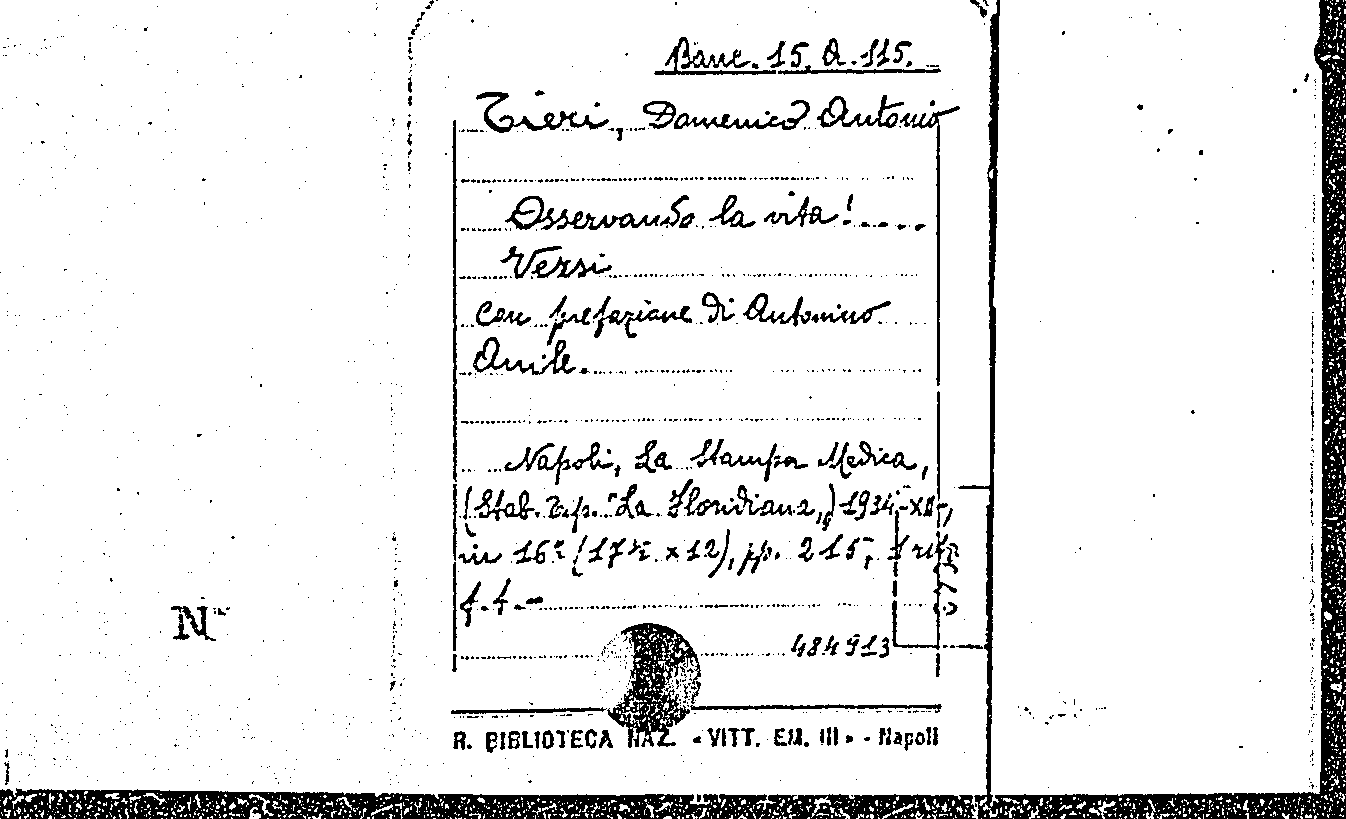 Banc. 15. A. 115.
Tieri, Domenico Antonio
Osservando la vita!....
Versi
con prefazione di Antonino
Anile.
Napoli, La Stampa Medica,
(Stab. Tip. "La Floridiana„) 1934-XII-,
in 16º (17½ x 12), pp. 215, 1 rit.
f.f.-
484913
R. BIBLIOTECA NAZ. « VITT. EM. III » - Napoli
N